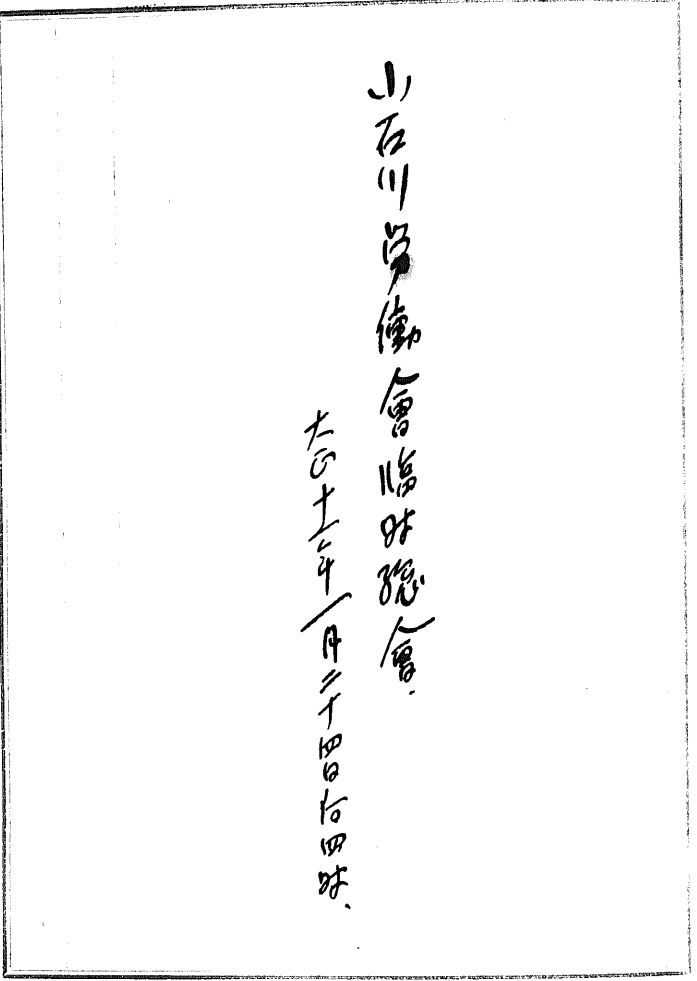 小石川労働會臨時総會.
大正十六年一月二十四日后四時、